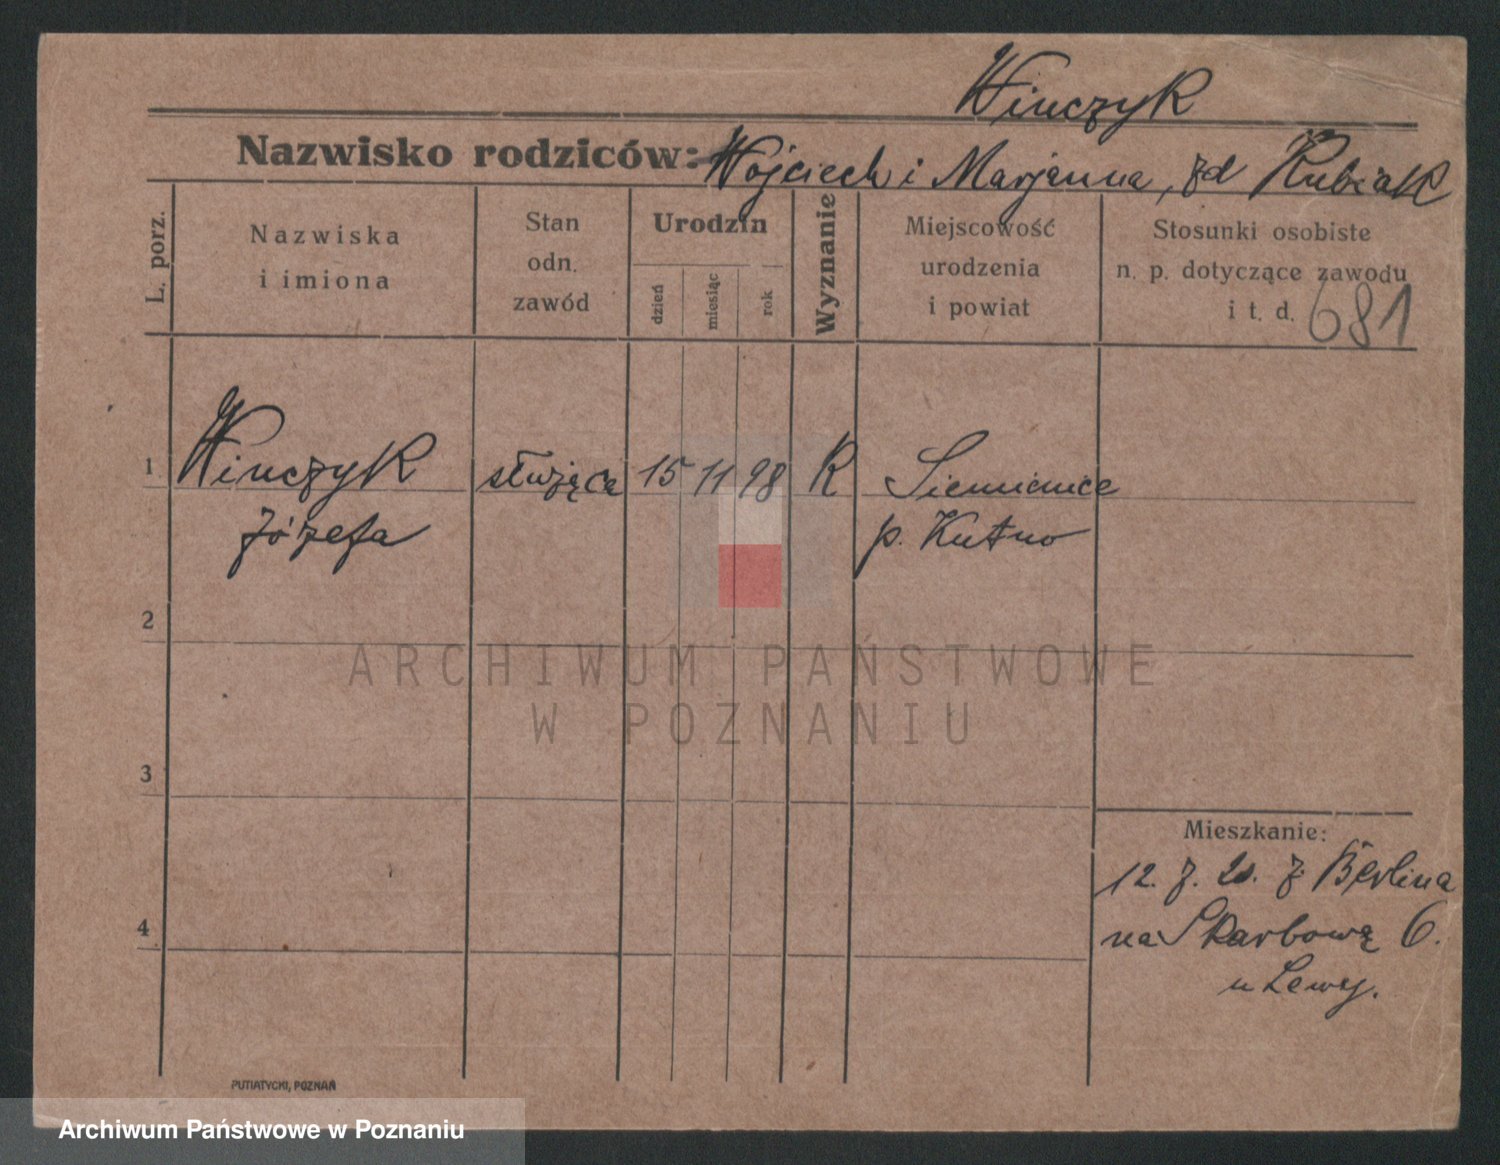 Winczyk
Nazwisko rodziców: Wojciech i Marjanna, zd Kubiak
L. porz.
Nazwiska
i imiona
Stan
odn.
zawód
Urodzin
dzień
miesiąc
rok
Wyznanie
Miejscowość
urodzenia
i powiat
Stosunki osobiste
n. p. dotyczące zawodu
i t. d.
681
1 Winczyk służąca 15 11 98 R Siemienice
Józefa p. Kutno
2
ARCHIWUM PAŃSTWOWE
W POZNANIU
3
Mieszkanie:
12. 7. 20. z Berlina
4
na Skarbową 6.
u Lewy.
PUTIATYCKI, POZNAŃ
Archiwum Państwowe w Poznaniu